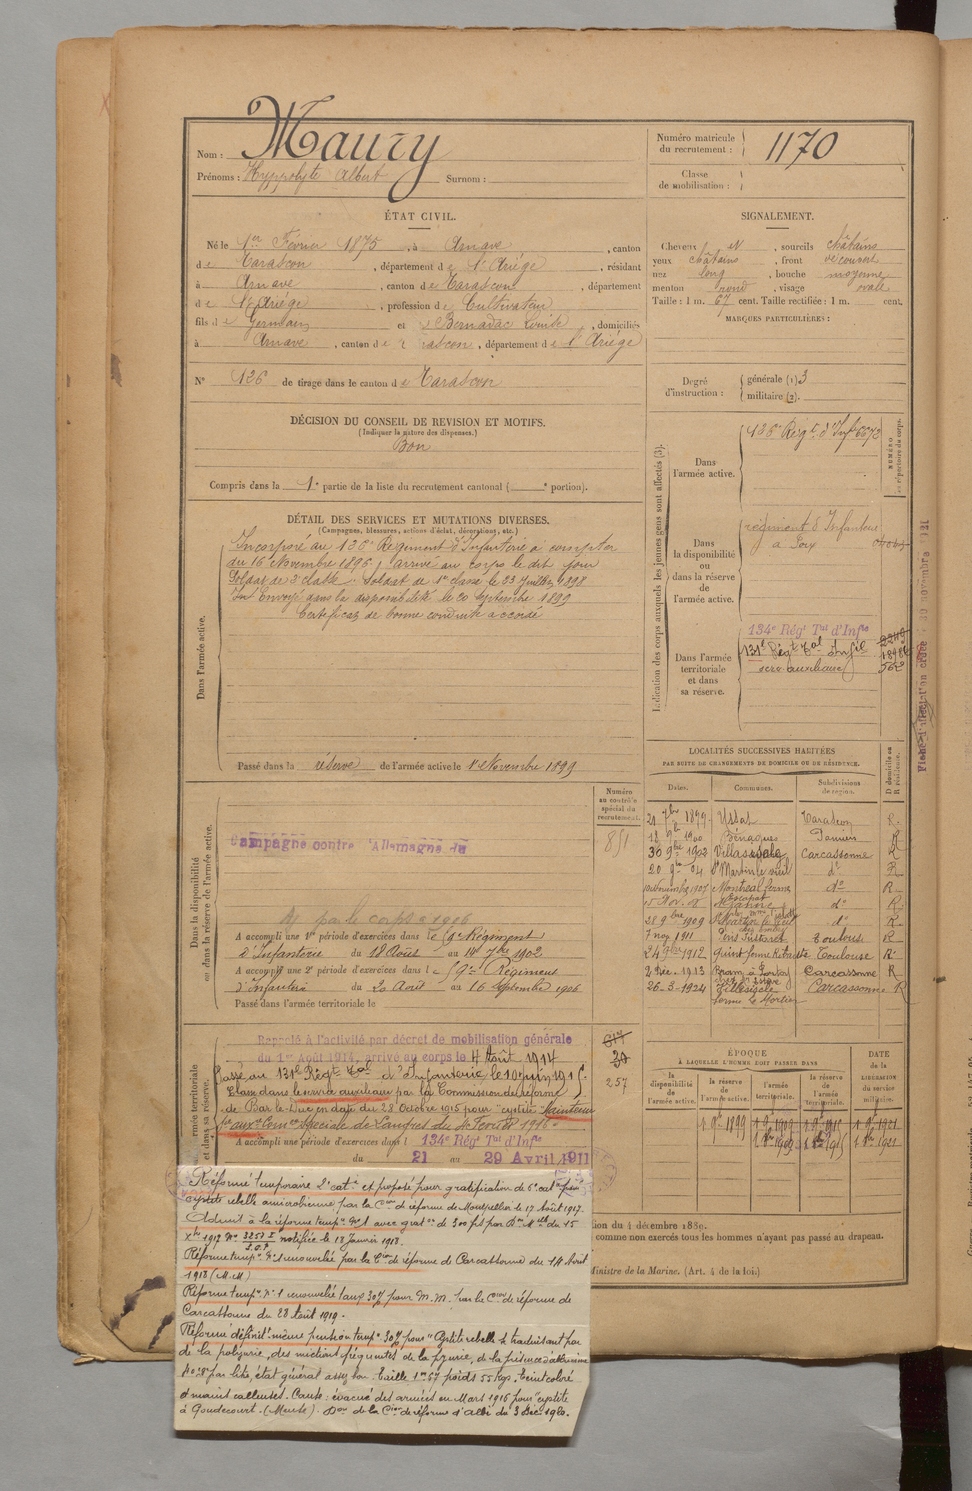 Nom : Maury
Prénoms : Hyppolyte Albert Surnom :
Numéro matricule du recrutement : 1170
Classe de mobilisation :
ÉTAT CIVIL.
Né le 1er Février 1875, à Arnave, canton
de Tarascon, département de l'Ariège, résidant
à Arnave, canton de Tarascon, département
de l'Ariège, profession de Cultivateur
fils de Germain et de Bernadac Louise, domiciliés
à Arnave, canton de Tarascon, département de l'Ariège
N° 126 de tirage dans le canton de Tarascon
SIGNALEMENT.
Cheveux N, sourcils châtains
yeux châtains, front découvert
nez long, bouche moyenne
menton rond, visage ovale
Taille : 1 m. 67 cent. Taille rectifiée : 1 m. cent.
MARQUES PARTICULIÈRES :
Degré d'instruction : générale (1) 3
militaire (2).
DÉCISION DU CONSEIL DE REVISION ET MOTIFS.
(Indiquer la nature des dispenses.)
Bon
Compris dans la 1e partie de la liste du recrutement cantonal ( e portion).
DÉTAIL DES SERVICES ET MUTATIONS DIVERSES.
(Campagnes, blessures, actions d'éclat, décorations, etc.)
Dans l'armée active.
Incorporé au 136e Régiment d'Infanterie à compter
du 16 Novembre 1896, arrivé au corps le dit jour
Soldat de 2e classe. Soldat de 1re classe le 23 Juillet 1898
En envoyé dans la disponibilité le 20 Septembre 1899
Certificat de bonne conduite accordé
Passé dans la réserve de l'armée active le 1er Novembre 1899
Indication des corps auxquels les jeunes gens sont affectés (3).
NUMÉRO au répertoire du corps.
Dans l'armée active.
136e Régt d'Infie 6673
Dans la disponibilité ou dans la réserve de l'armée active.
régiment d'Infanterie
à Foix
Dans l'armée territoriale et dans sa réserve.
134e Régt Tal d'Infie
131e Régt Tal d'Infie
serv auxiliaire
LOCALITÉS SUCCESSIVES HABITÉES
PAR SUITE DE CHANGEMENTS DE DOMICILE OU DE RÉSIDENCE.
Dates. Communes. Subdivisions de région. D domicile ou R résidence.
21 7bre 1899 Ussat Tarascon R.
18 9bre 1900 Bénagues Pamiers R
30 9bre 1902 Villasavary Carcassonne R
20 9bre 04 St Martin le vieil do R
10 Novembre 1907 Montréal ferme do R
15 Nov. 08 do R
28 9bre 1909 do R
7 nov 1911 Toulouse R
24 7bre 1912 Quint ferme Toulouse R
2 Déc. 1913 Bram Carcassonne R
26-3-1924 Villesiscle Carcassonne R
ferme Le Mortier
Dans la disponibilité ou dans la réserve de l'armée active.
Numéro au contrôle spécial du recrutement.
851
Campagne contre l'Allemagne du
par le corps 1906
A accompli une 1re période d'exercices dans le Régiment
d'Infanterie du 18 Août au 14 7bre 1902
A accompli une 2e période d'exercices dans l 9e Régiment
d'Infanterie du 20 Août au 16 Septembre 1906
Passé dans l'armée territoriale le
armée territoriale et dans sa réserve.
Rappelé à l'activité par décret de mobilisation générale
du 1er Août 1914, arrivé au corps le 4 Août 1914
Passé au 131e Régt Tal d'Infanterie le 10 juin 1915.
Classé dans le service auxiliaire par la Commission de réforme
de Bar-le-Duc en date du 28 Octobre 1915 pour "cystite" Maintenu
Sce auxre Comon Spéciale de Langres du 1916
257
A accompli une période d'exercices dans l 134e Régt Tal d'Infie
du 21 au 29 Avril 1911
ÉPOQUE
À LAQUELLE L'HOMME DOIT PASSER DANS
la disponibilité de l'armée active. la réserve de l'armée active. l'armée territoriale. la réserve de l'armée territoriale.
DATE de la LIBÉRATION DU SERVICE militaire.
1 9bre 1899 1 9bre 1909 1 9bre 1915 1 9bre 1921
1 8bre 1909 1 8bre 1915 1 8bre 1921
Réformé temporaire 2e catie et proposé pour gratification de 6e catie pour
cystite rebelle amicrobienne par la Cion de réforme de Montpellier le 17 Août 1917.
Admit à la réforme tempre No 1 avec graton de 300 frs par Dn Mlle du 15
Xbre 1917 No 3257 I notifiée le 18 Janvier 1918.
Réforme tempre No 1 renouvelée par la Cion de réforme de Carcassonne du 14 Avril
1918 (M.M)
Réforme tempre No 1 renouvelée 1 an 30% pour M.M. par la Cion de réforme de
Carcassonne du 28 Août 1919.
Réformé définitt même pension tempre 30% pour "Cystite rebelle se traduisant par
de la polyurie, des mictions fréquentes, de la pyurie, de la présence d'albumine
0g,8 par litre, état général assez bon. Taille 1m67 poids 55 kgs. Teint coloré
et mains calleuses. Cause : évacué des armées en Mars 1916 pour "cystite
à Gondrecourt (Meuse). Don de la Cion de réforme d'Albi du 3 Déc. 1920.
tion du 4 décembre 1889.
comme non exercés tous les hommes n'ayant pas passé au drapeau.
Ministre de la Marine. (Art. 4 de la loi.)